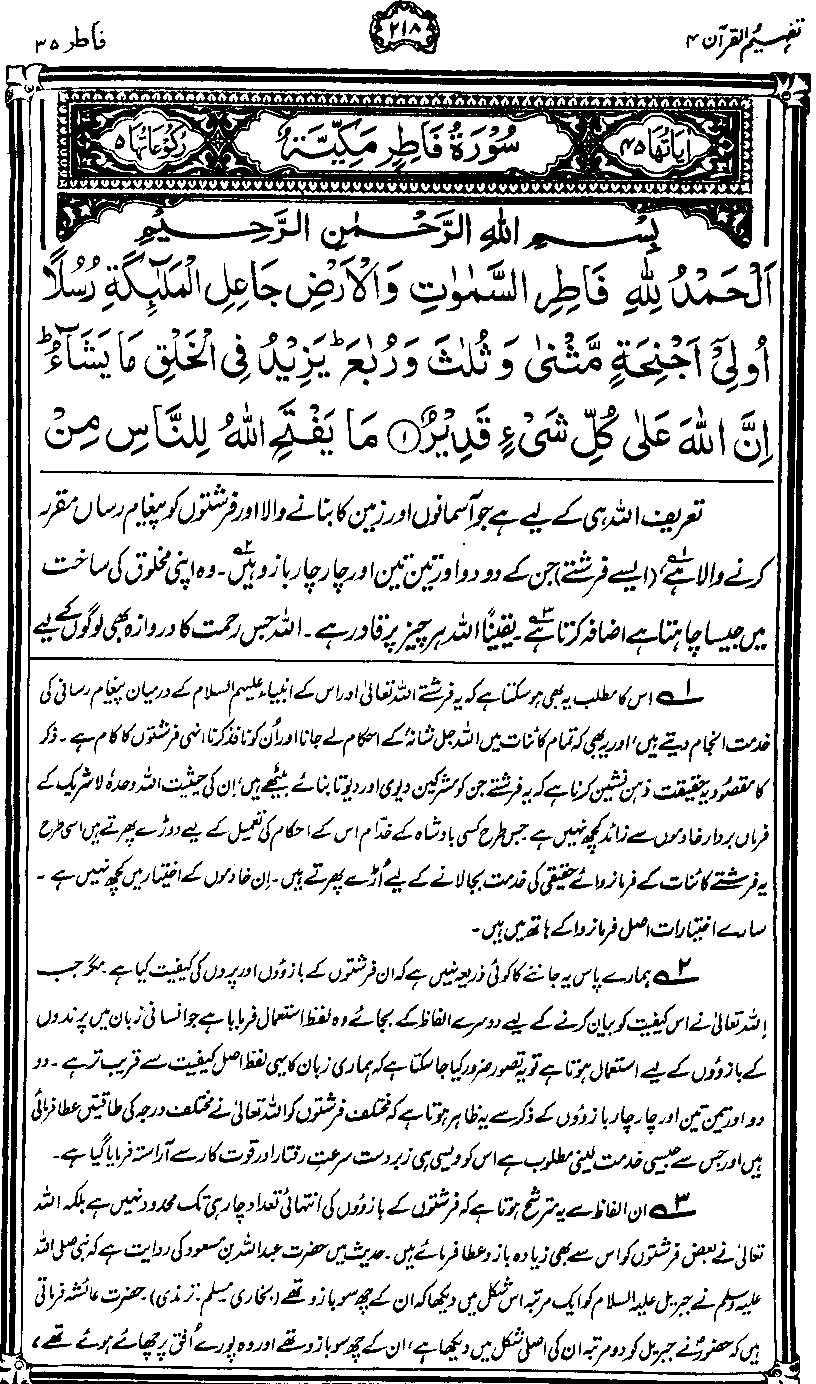 تفہیم القرآن ۴
۲۱۸
فاطر ۳۵
اٰیَاتُهَا ۴۵
سُوْرَةُ فَاطِرٍ مَكِّيَّةٌ
رُكُوْعَاتُهَا ۵
بِسْمِ اللهِ الرَّحْمٰنِ الرَّحِيْمِ
اَلْحَمْدُ لِلّٰهِ فَاطِرِ السَّمٰوٰتِ وَالْاَرْضِ جَاعِلِ الْمَلٰٓئِكَةِ رُسُلًا
اُولِیْۤ اَجْنِحَةٍ مَّثْنٰی وَ ثُلٰثَ وَ رُبٰعَ ؕ یَزِیْدُ فِی الْخَلْقِ مَا یَشَآءُ ؕ
اِنَّ اللهَ عَلٰی كُلِّ شَیْءٍ قَدِیْرٌ ۱ مَا یَفْتَحِ اللهُ لِلنَّاسِ مِنْ
تعریف اللہ ہی کے لیے ہے جو آسمانوں اور زمین کا بنانے والا اور فرشتوں کو پیغام رساں مقرر
کرنے والا ہے۱؎، (ایسے فرشتے) جن کے دو دو اور تین تین اور چار چار بازو ہیں۲؎۔ وہ اپنی مخلوق کی ساخت
میں جیسا چاہتا ہے اضافہ کرتا ہے۳؎۔ یقیناً اللہ ہر چیز پر قادر ہے۔ اللہ جس رحمت کا دروازہ بھی لوگوں کے لیے
۱؎ اس کا مطلب یہ بھی ہو سکتا ہے کہ یہ فرشتے اللہ تعالیٰ اور اس کے انبیاء علیہم السلام کے درمیان پیغام رسانی کی
خدمت انجام دیتے ہیں، اور یہ بھی کہ تمام کائنات میں اللہ جل شانہٗ کے احکام لے جانا اور اُن کو نافذ کرنا انہی فرشتوں کا کام ہے۔ ذکر
کا مقصود یہ حقیقت ذہن نشین کرنا ہے کہ یہ فرشتے جن کو مشرکین دیوی اور دیوتا بنائے بیٹھے ہیں، اِن کی حیثیت اللہ وحدہٗ لاشریک کے
فرماں بردار خادموں سے زائد کچھ نہیں ہے۔ جس طرح کسی بادشاہ کے خدّام اس کے احکام کی تعمیل کے لیے دوڑے پھرتے ہیں اسی طرح
یہ فرشتے کائنات کے فرمانروائے حقیقی کی خدمت بجا لانے کے لیے اُڑے پھرتے ہیں۔ اِن خادموں کے اختیار میں کچھ نہیں ہے۔
سارے اختیارات اصل فرمانروا کے ہاتھ میں ہیں۔
۲؎ ہمارے پاس یہ جاننے کا کوئی ذریعہ نہیں ہے کہ ان فرشتوں کے بازوؤں اور پروں کی کیفیت کیا ہے۔ مگر جب
اللہ تعالیٰ نے اس کیفیت کو بیان کرنے کے لیے دوسرے الفاظ کے بجائے وہ لفظ استعمال فرمایا ہے جو انسانی زبان میں پرندوں
کے بازوؤں کے لیے استعمال ہوتا ہے تو یہ تصور ضرور کیا جا سکتا ہے کہ ہماری زبان کا یہی لفظ اصل کیفیت سے قریب تر ہے۔ دو
دو اور تین تین اور چار چار بازوؤں کے ذکر سے یہ ظاہر ہوتا ہے کہ مختلف فرشتوں کو اللہ تعالیٰ نے مختلف درجہ کی طاقتیں عطا فرمائی
ہیں اور جس سے جیسی خدمت لینی مطلوب ہے اس کو ویسی ہی زبردست سرعتِ رفتار اور قوت کار سے آراستہ فرمایا گیا ہے۔
۳؎ ان الفاظ سے یہ مترشح ہوتا ہے کہ فرشتوں کے بازوؤں کی انتہائی تعداد چار ہی تک محدود نہیں ہے بلکہ اللہ
تعالیٰ نے بعض فرشتوں کو اس سے بھی زیادہ بازو عطا فرمائے ہیں۔ حدیث میں حضرت عبداللہ بن مسعود کی روایت ہے کہ نبی صلی اللہ
علیہ وسلم نے جبریل علیہ السلام کو ایک مرتبہ اس شکل میں دیکھا کہ ان کے چھ سو بازو تھے (بخاری مسلم۔ ترمذی)۔ حضرت عائشہ فرماتی
ہیں کہ حضورؐ نے جبریل کو دو مرتبہ ان کی اصلی شکل میں دیکھا ہے، ان کے چھ سو بازو تھے اور وہ پورے اُفق پر چھائے ہوئے تھے،